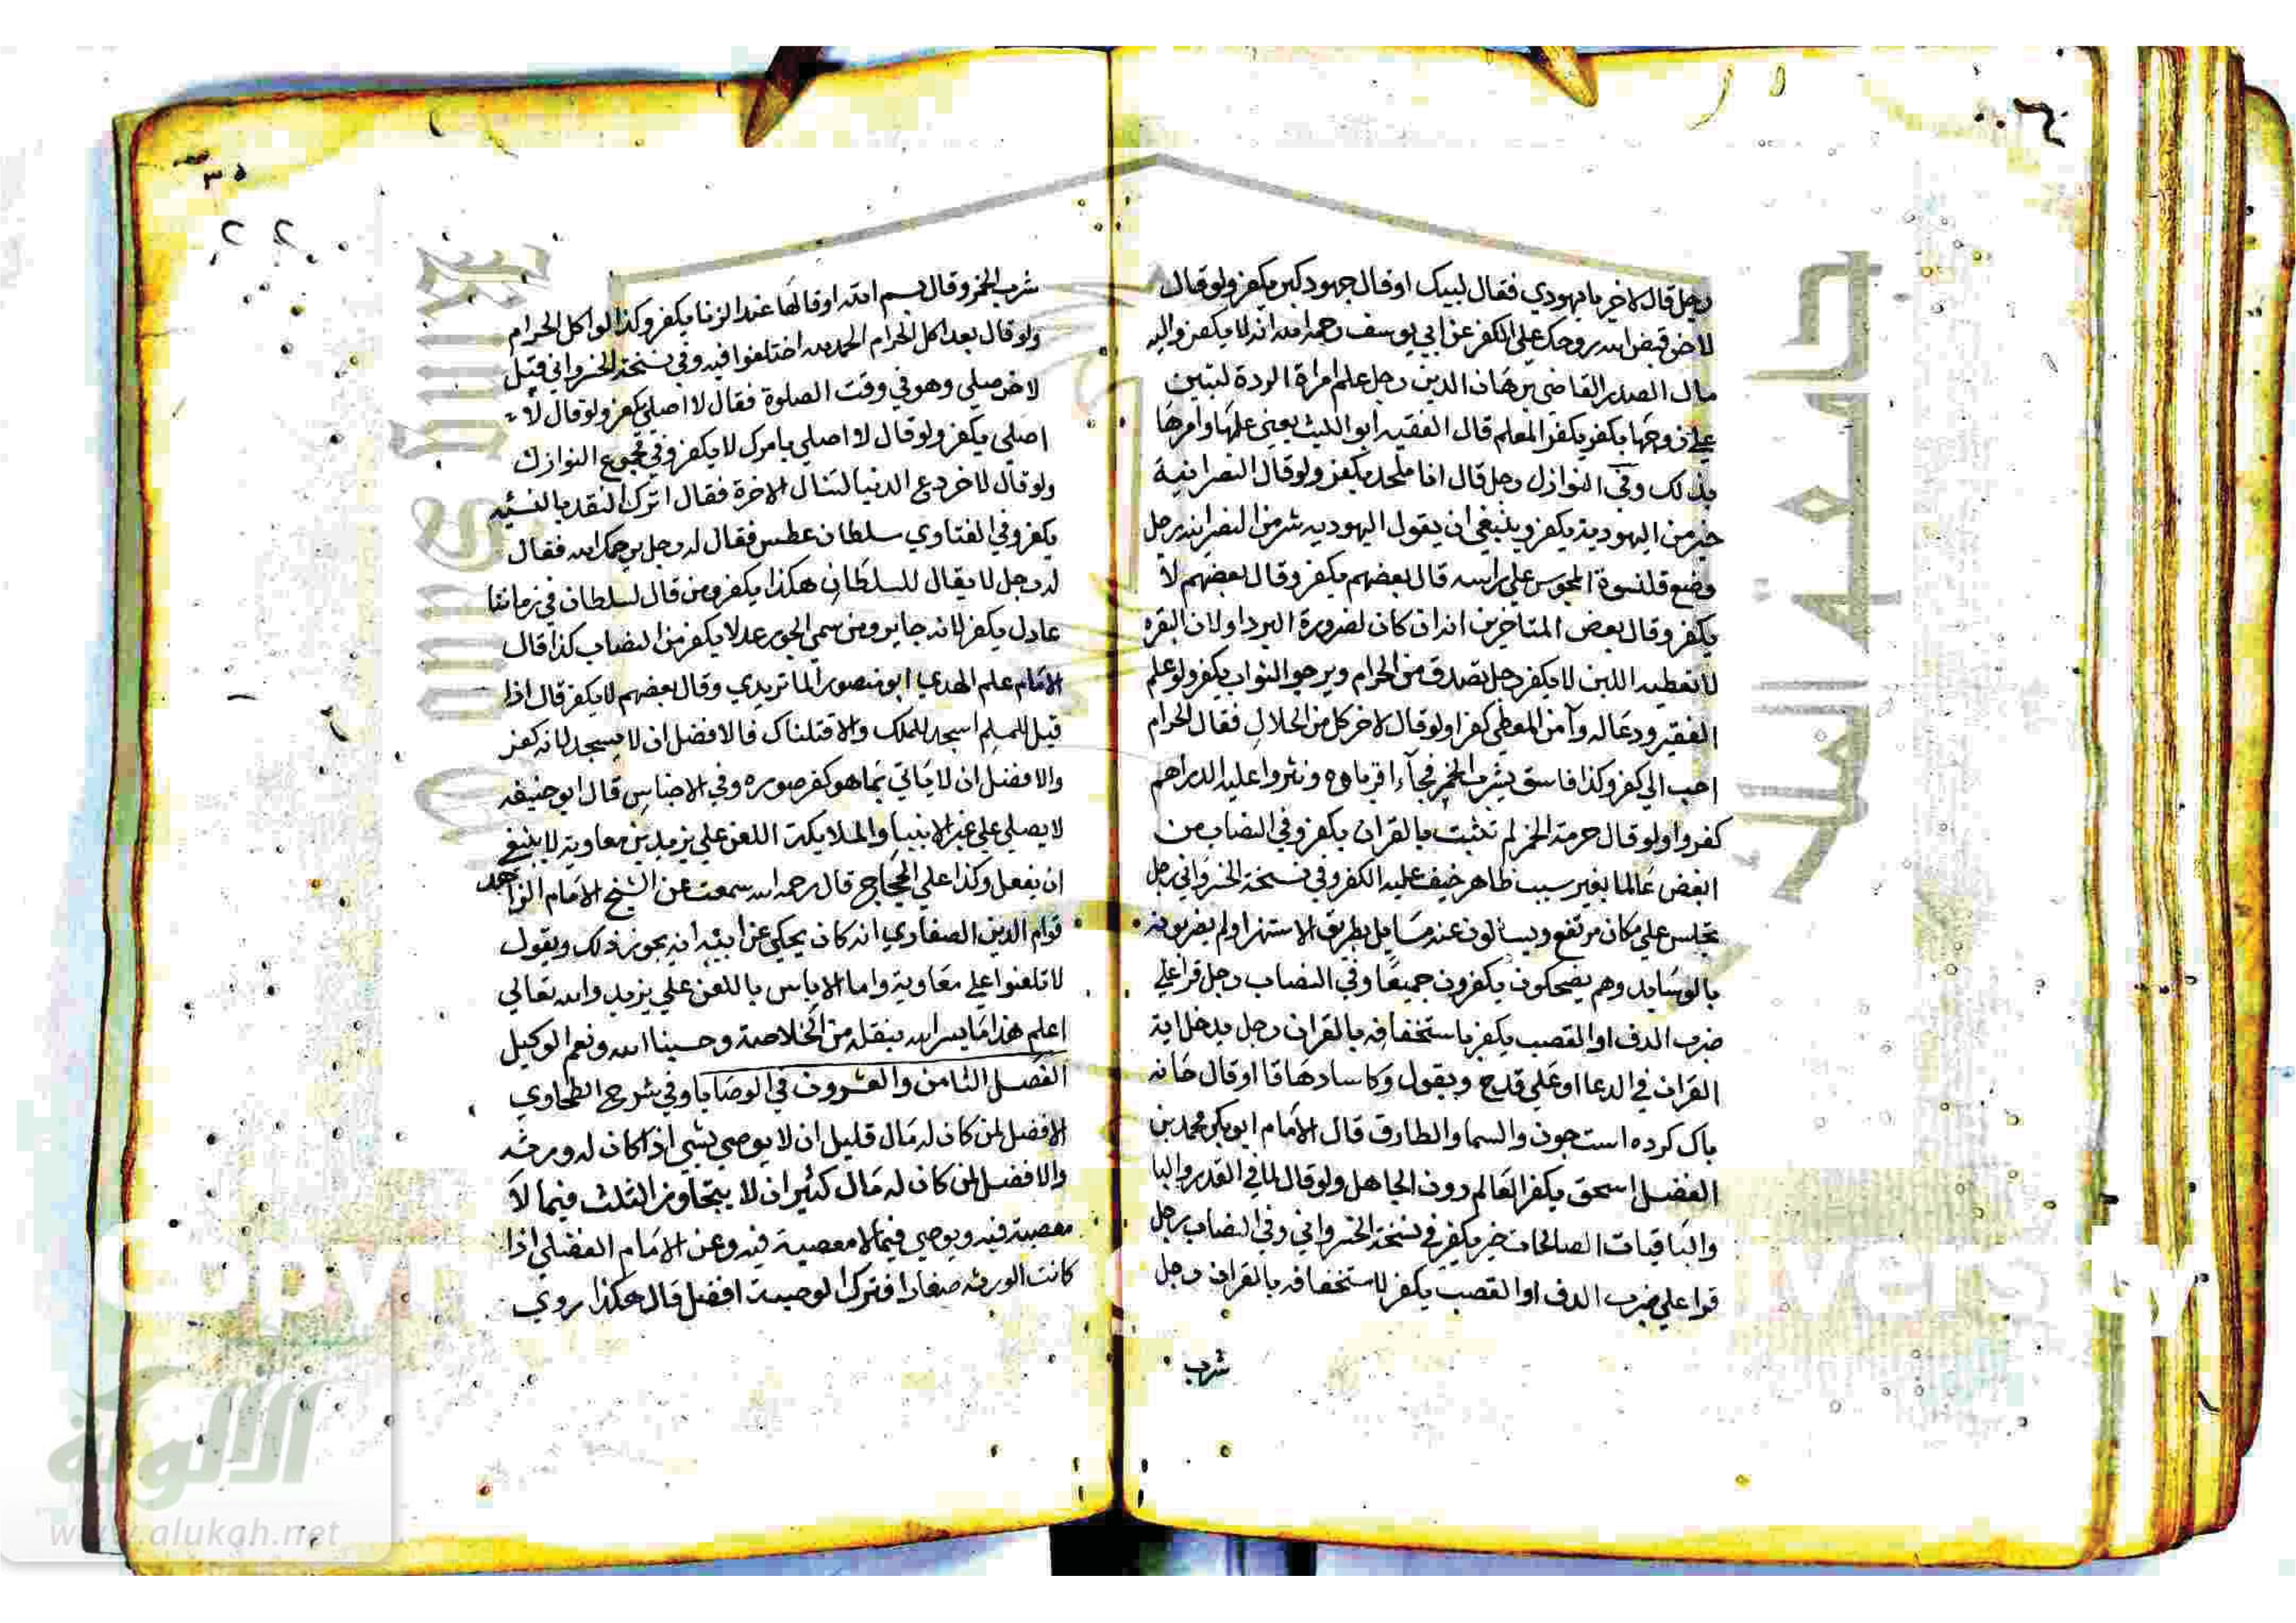 رجل قال لاخر يا يهودي فقال لبيك او قال جهود كير يكفر ولو قال
لاخر قبض الله روحك على الكفر عن ابي يوسف رحمه الله انه لا يكفر واليه
مال الصدر القاضي برهان الدين رجل علم امراة الردة لتبين
علي زوجها يكفر يكفر المعلم قال الفقيه ابو الليث يعني علمها وامرها
بذلك وفي النوازل رجل قال انا ملحد يكفر ولو قال النصرانية
خير من اليهودية يكفر وينبغي ان يقول اليهوديه شر من النصرانيه رجل
وضع قلنسوة المجوس علي راسه قال بعضهم يكفر وقال بعضهم لا
يكفر وقال بعض المتاخرين انه ان كان لضرورة البرد او لان البقره
لا تعطيه اللبن لا يكفر رجل تصدق من الحرام ويرجو الثواب يكفر ولو علم
الفقير ودعا له وآمن المعطي كفرا ولو قال لاخر كل من الحلال فقال الحرام
احب الي كفر وكذا فاسق يشرب الخمر فجآء اقرباوه ونثروا عليه الدراهم
كفروا ولو قال حرمة الخمر لم تثبت بالقران يكفر وفي النصاب من
ابغض عالما بغير سبب ظاهر خيف عليه الكفر وفي نسخة الخسرواني رجل
يجلس علي مكان مرتفع ويسالون عنه مسايل بطريق الاستهزا ولم يضربونه
بالوسايد وهم يضحكون يكفرون جميعا وفي النصاب رجل قرا علي
ضرب الدف او القصب يكفر باستخفافه بالقران رجل يدخل اية
القران في الدعا او علي قدح ويقول وكاسا دهاقا او قال خانه
باك كرده است جون والسما والطارق قال الامام ابو بكر محمد بن
الفضل اسحق يكفر العالم دون الجاهل ولو قال لما في القدر والبا
والباقيات الصالحات خير يكفر في نسخة الخسرواني وفي النصاب رجل
قرا علي ضرب الدف او القصب يكفر لاستخفافه بالقران رجل
شرب
٣٥
٢٢
شرب الخمر وقال بسم الله او قالها عند الزنا يكفر وكذا لو اكل الحرام
ولو قال بعد اكل الحرام الحمد لله اختلفوا فيه وفي نسخة الخسرواني قيل
لاخر صلي وهو في وقت الصلوة فقال لا اصلي يكفر ولو قال لا
اصلي يكفر ولو قال لا اصلي بامرك لا يكفر وفي مجموع النوازل
ولو قال لاخر دع الدنيا لتنال الاخرة فقال اترك النقد بالنسيه
يكفر وفي الفتاوي سلطان عطس فقال له رجل يرحمك الله فقال
له رجل لا يقال للسلطان هكذا يكفر ومن قال لسلطان في زماننا
عادل يكفر لانه جاير ومن سمي الجور عدلا يكفر من النصاب كذا قال
الامام علم الهدي ابو منصور الماتريدي وقال بعضهم لا يكفر قال اذا
قيل للمسلم اسجد للملك والا قتلناك فالافضل ان لا يسجد لانه كفر
والافضل ان لا ياتي بما هو كفر صوره وفي الاجناس قال ابو حنيفه
لا يصلي علي غير الانبيا والملايكة اللعن علي يزيد بن معاوية لا ينبغي
ان يفعل وكذا علي الحجاج قال رحمه الله سمعت عن الشيخ الامام الزاهد
قوام الدين الصفاري انه كان يحكي عن ابيه انه يجوز ذلك ويقول
لا تلعنوا علي معاوية واما لا باس باللعن علي يزيد والله تعالي
اعلم هذا ما يسر الله بنقله من الخلاصة وحسبنا الله ونعم الوكيل
الفصل الثامن والعشرون في الوصايا وفي شرح الطحاوي
الافضل لمن كان له مال قليل ان لا يوصي بشي اذا كان له ورثه
والافضل لمن كان له مال كثير ان لا يتجاوز الثلث فيما لا
معصية فيه ويوصي فيما لا معصية فيه وعن الامام الفضلي اذا
كانت الورثه صغارا فترك الوصية افضل قال هكذا روي
جامعة الملك
الألوكة
www.alukah.net
Copyr
versity